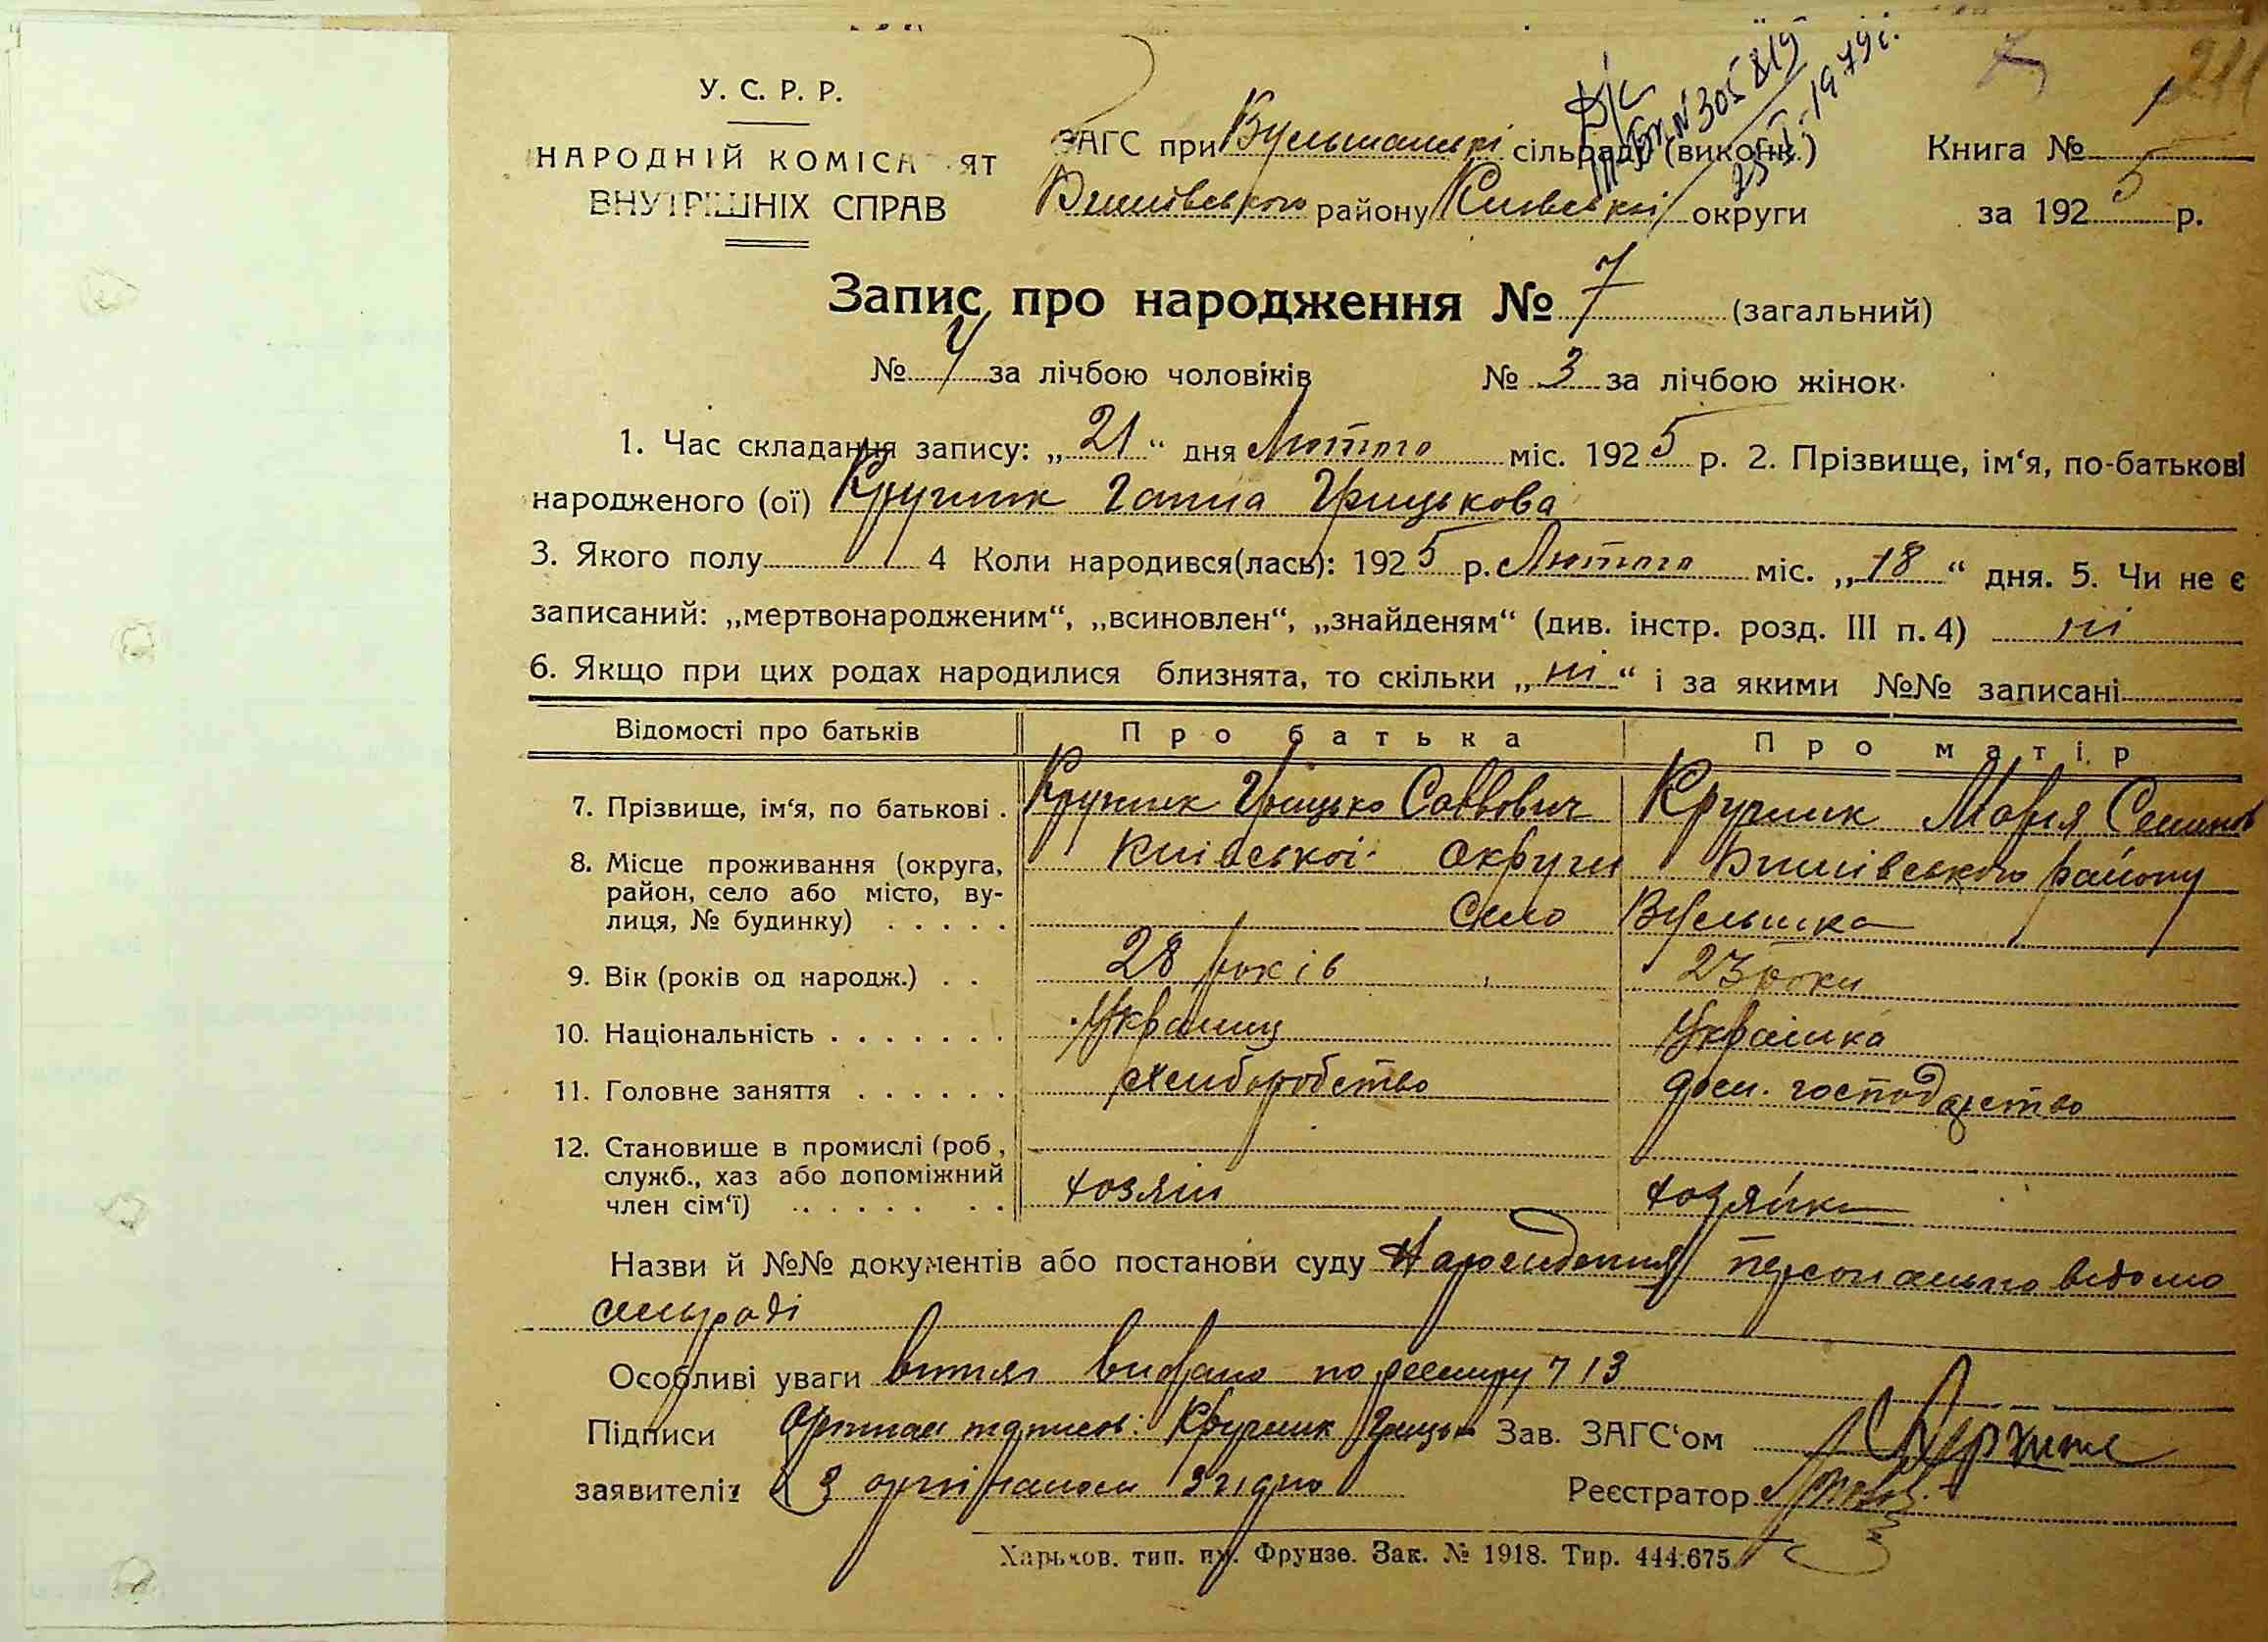 У. С. Р. Р.
НАРОДНІЙ КОМІСА ЯТ
ВНУТРІШНІХ СПРАВ
ЗАГС при сільраді (виконк.)
району Київської округи
№ 305819
1979 г.
Книга № 1
за 1925 р.
Запис про народження № 7 (загальний)
№ 4 за лічбою чоловіків № 3 за лічбою жінок.
1. Час складання запису: „21“ дня Лютого міс. 1925 р. 2. Прізвище, ім'я, по-батькові
народженого (ої) Кручик Ганна Грицькова
3. Якого полу 4 Коли народився(лась): 1925 р. Лютого міс. „18“ дня. 5. Чи не є
записаний: „мертвонародженим“, „всиновлен“, „знайденям“ (див. інстр. розд. III п. 4) ні
6. Якщо при цих родах народилися близнята, то скільки „ні“ і за якими №№ записані
Відомості про батьків Про батька Про матір
7. Прізвище, ім'я, по батькові . Кручик Грицько Саввович Кручик Марія
8. Місце проживання (округа, район, село або місто, вулиця, № будинку) . . . . . Київської округи району
Село
9. Вік (років од народж.) . . 28 років 23 роки
10. Національність . . . . . . . Українець Українка
11. Головне заняття . . . . . . хліборобство дом. господарство
12. Становище в промислі (роб., служб., хаз або допоміжний член сім'ї) . . . . . . . . хозяїн хозяйка
Назви й №№ документів або постанови суду Народження персонально відомо
сільраді
Особливі уваги витяг видано по реєстру 7 13
Підписи підписав: Кручик Грицько Зав. ЗАГС'ом
заявителів З оригіналом згідно Реєстратор
Харьков. тип. им. Фрунзе. Зак. № 1918. Тир. 444.675